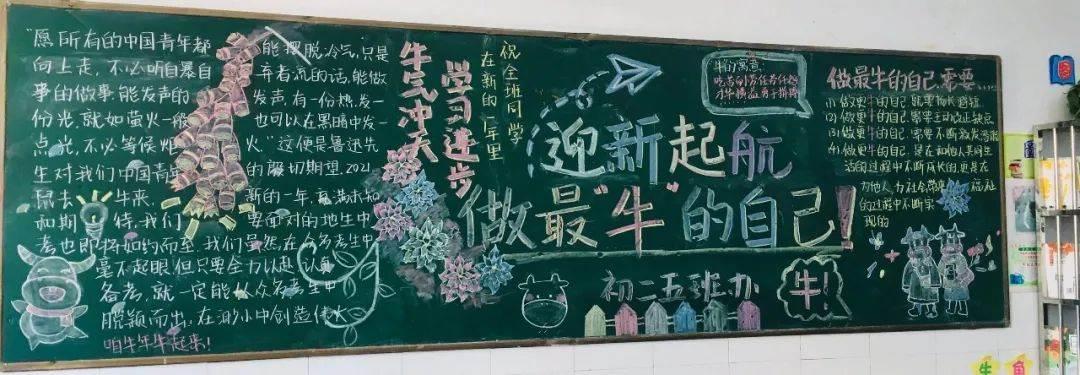 "愿所有的中国青年都 能摆脱冷气,只是
向上走,不必听自暴自 弃者流的话,能做
事的做事,能发声的 发声,有一份热,发一
份光,就如萤火一般 也可以在黑暗中发一
点光,不必等候炬 火"这便是鲁迅先
生对我们中国青年 的殷切期望.2021
鼠去 牛来, 新的一年,充满未知
和期 待,我们 要面对的地生中
考也即将如约而至,我们虽然在众多考生中
毫不起眼,但只要全力以赴,认真
备考,就一定能从众多考生中
脱颖而出,在渺小中创造伟大
咱牛年牛起来!
祝全班同学
在新的一年里
学习进步
牛气冲天
迎新起航
做最"牛"的自己!
初二五班办
牛的寓意:
牛!
做最牛的自己,需要......
(1) 做更牛的自己,就要扬长避短
(2) 做更牛的自己,需要主动改正缺点
(3) 做更牛的自己,需要不断激发潜能
(4) 做更牛的自己,是在和他人共同生
活的过程中不断成长的,更是在
为他人、为社会带来 福祉
的过程中不断实
现的
牛 角